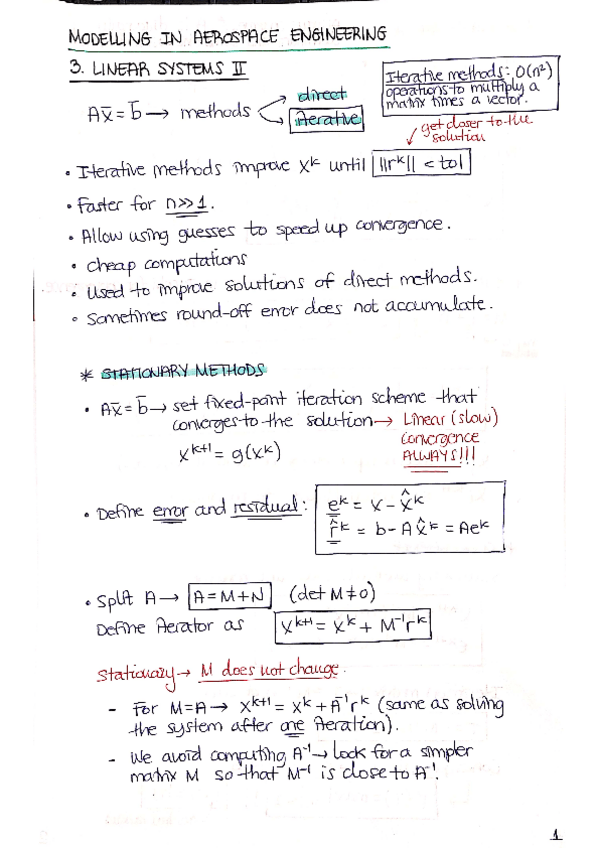 MODELLING IN AEROSPACE ENGINEERING
3. LINEAR SYSTEMS II
Ax̄ = b̄ → methods
direct
iterative
Iterative methods: O(n²)
operations to multiply a
matrix times a vector.
get closer to the
solution
• Iterative methods improve xᵏ until ||rᵏ|| < tol
• Faster for n>>1.
• Allow using guesses to speed up convergence.
• cheap computations
• used to improve solutions of direct methods.
• Sometimes round-off error does not accumulate.
* STATIONARY METHODS
• Ax̄ = b̄ → set fixed-point iteration scheme that
converges to the solution → Linear (slow)
convergence
ALWAYS!!!
xᵏ⁺¹ = g(xᵏ)
• Define error and residual:
eᵏ = x - x̂ᵏ
r̂ᵏ = b - Ax̂ᵏ = Aeᵏ
• Split A → A = M + N (det M ≠ 0)
Define iterator as xᵏ⁺¹ = xᵏ + M⁻¹rᵏ
Stationary → M does not change.
- For M=A → xᵏ⁺¹ = xᵏ + A⁻¹rᵏ (same as solving
the system after one iteration).
- We avoid computing A⁻¹ → look for a simpler
matrix M so that M⁻¹ is close to A⁻¹.
1